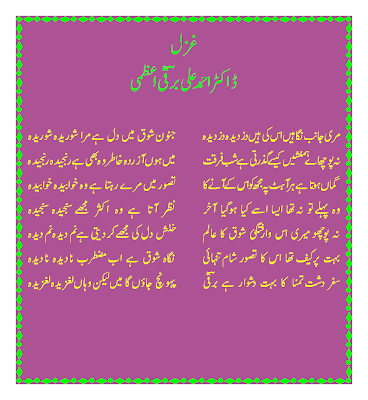 غزل
ڈاکٹر احمد علی برقیؔ اعظمی
مری جانب نگاہیں اس کی ہیں دزدیدہ دزدیدہ جنونِ شوق میں دل ہے مرا شوریدہ شوریدہ
نہ پوچھ اے ہمنشیں کیسے گذرتی ہے شبِ فرقت میں ہوں آزردہ خاطر وہ بھی ہے رنجیدہ رنجیدہ
گماں ہوتا ہے ہر آہٹ پہ مجھ کو اس کے آنے کا تصور میں مرے رہتا ہے وہ خوابیدہ خوابیدہ
وہ پہلے تو نہ تھا ایسا اسے کیا ہوگیا آخر نظر آتا ہے وہ اکثر مجھے سنجیدہ سنجیدہ
نہ پوچھو میری اس وارفتگئ شوق کا عالم خلش دل کی مجھے کر دیتی ہے نم دیدہ نم دیدہ
بہت پر کیف تھا اس کا تصور شامِ تنہائی نگاہِ شوق ہے اب مضطرب نادیدہ نادیدہ
سفر دشتِ تمنا کا بہت دشوار ہے برقیؔ پہونچ جاؤں گا میں لیکن وہاں لغزیدہ لغزیدہ